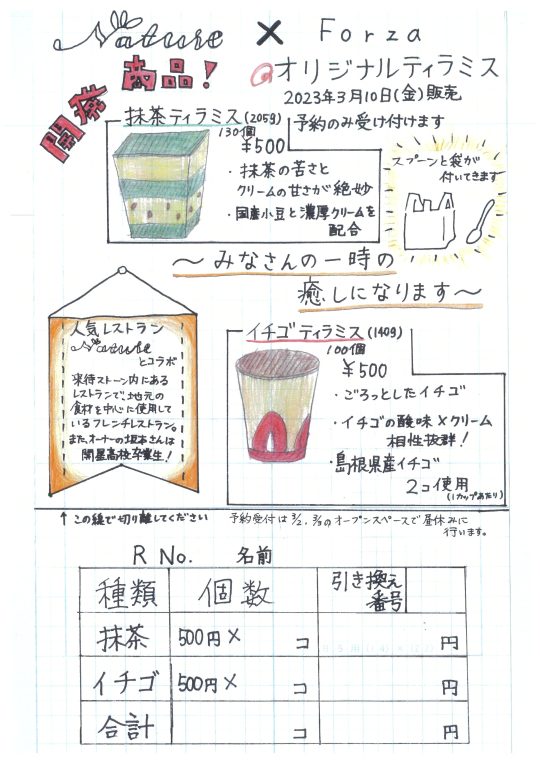 Nature × Forza
開発商品!
@オリジナルティラミス
2023年3月10日(金)販売
抹茶ティラミス(205g)
130個
予約のみ受け付けます
¥500
・抹茶の苦さと
クリームの甘さが絶妙
・国産小豆と濃厚クリームを
配合
スプーンと袋が
付いてきます
～みなさんの一時の
癒しになります～
人気レストラン
Nature
とコラボ
来待ストーン内にある
レストランで、地元の
食材を中心に使用して
いるフレンチレストラン。
また、オーナーの坂本さんは
開星高校卒業生!
イチゴティラミス(140g)
100個
¥500
・ごろっとしたイチゴ
・イチゴの酸味×クリーム
相性抜群!
・島根県産イチゴ
2コ使用
(1カップあたり)
↑この線で切り離してください
予約受付は3/2、3/3のオープンスペースで昼休みに
行います。
R No. 名前
種類 個数 引き換え
番号
抹茶 500円× コ 円
イチゴ 500円× コ 円
合計 コ 円